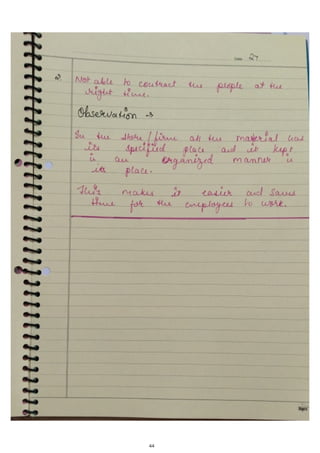 Date 27
2. Not able to contract the people at the
right time.
Observation →
In the store / firm all the material has
its specified place and it kept
in an organized manner in
its place.
This makes it easier and saves
time for the employees to work.
44